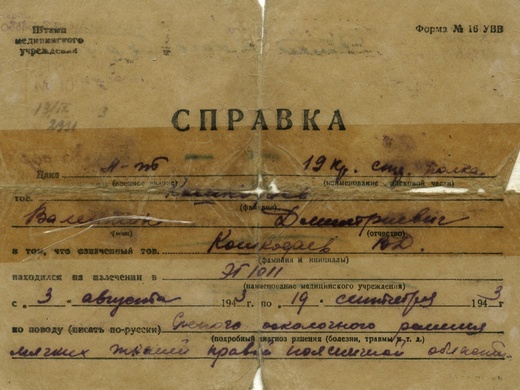 Штамп Форма № 16 УВВ
медицинского
учреждения
13/IX
СПРАВКА
Дана м-т 19 кр. стр. полка
(военное звание) (наименование войсковой части)
тов.
(фамилия)
Валентин Дмитриевич
(имя) (отчество)
в том, что означенный тов. Кошкодаев В.Д.
(фамилия и инициалы)
находился на излечении в ЭГ 1011
(наименование медицинского учреждения)
с „3„ августа 1943 г. по „19„ сентября 1943
по поводу (писать по-русски) Слепого осколочного ранения
(подробный диагноз ранения (болезни, травмы и т. д.)
мягких тканей правой поясничной области.